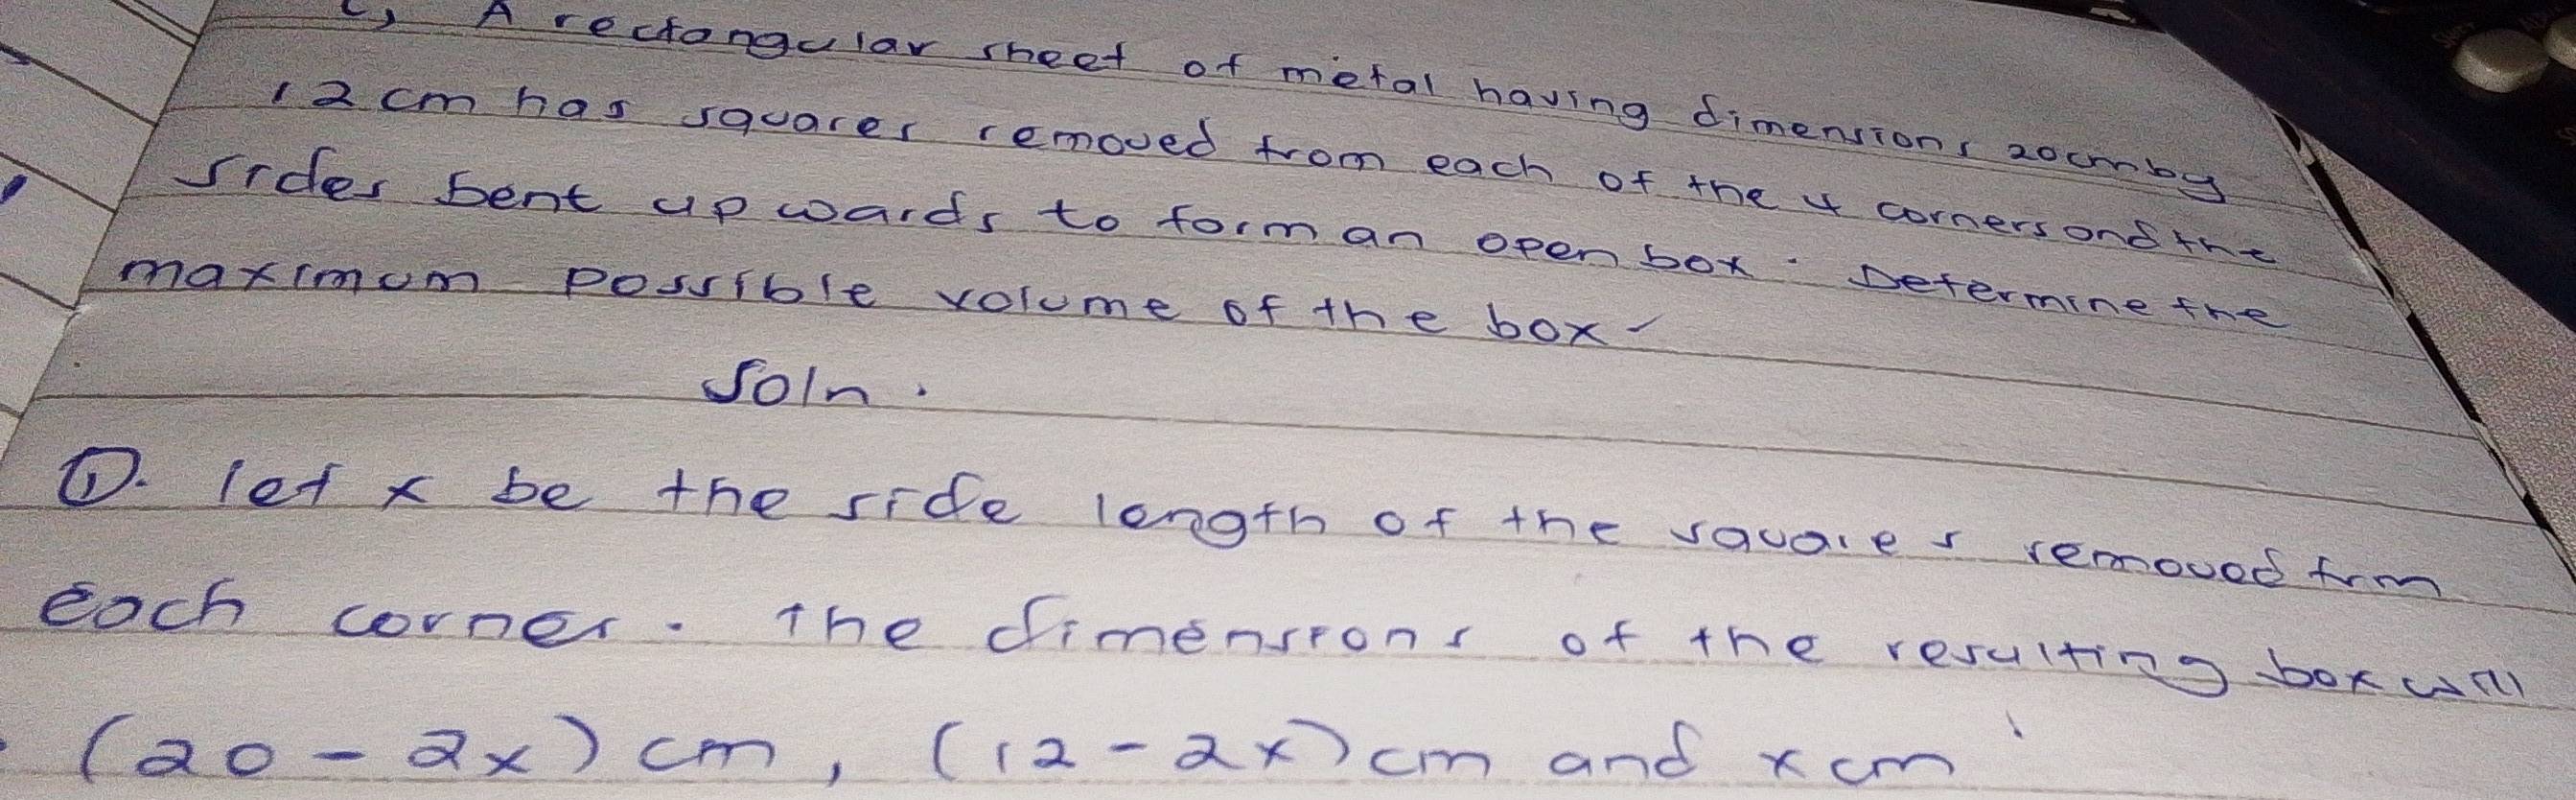 c, A rectangular sheet of metal having dimensions 20cm by
12 cm has squares removed from each of the 4 corners and the
sides bent upwards to form an open box. Determine the
maximum possible volume of the box.
Soln.
①. let x be the side length of the squares removed from
each corner. The dimensions of the resulting box will
(20 - 2x) cm, (12 - 2x) cm and x cm